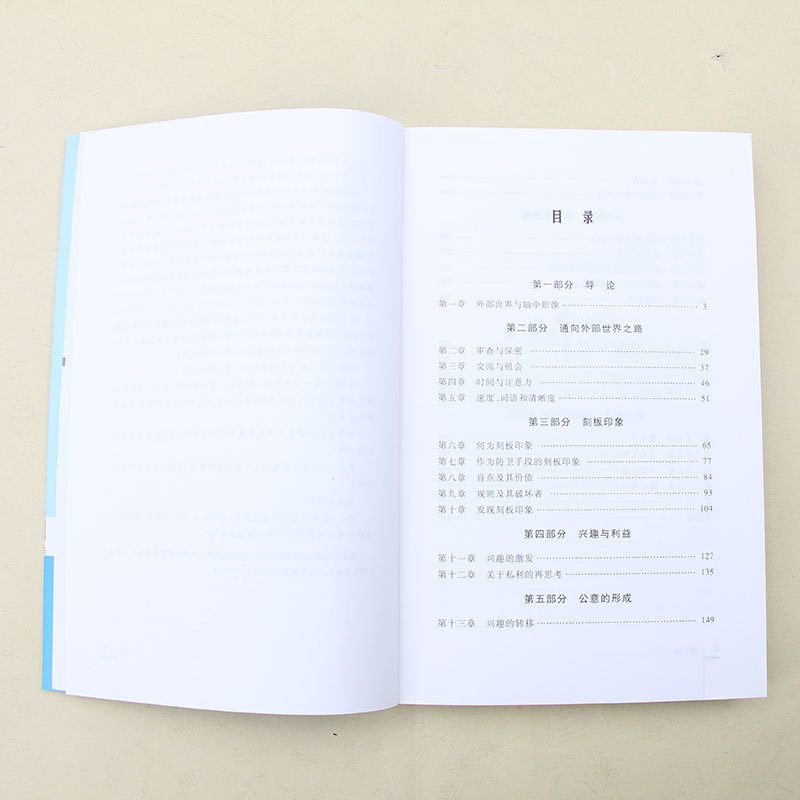 目 录
第一部分 导 论
第一章 外部世界与脑中影像 3
第二部分 通向外部世界之路
第二章 审查与保密 29
第三章 交流与机会 37
第四章 时间与注意力 46
第五章 速度、词语和清晰度 51
第三部分 刻板印象
第六章 何为刻板印象 65
第七章 作为防卫手段的刻板印象 77
第八章 盲点及其价值 84
第九章 规则及其破坏者 93
第十章 发现刻板印象 104
第四部分 兴趣与利益
第十一章 兴趣的激发 127
第十二章 关于私利的再思考 135
第五部分 公意的形成
第十三章 兴趣的转移 149